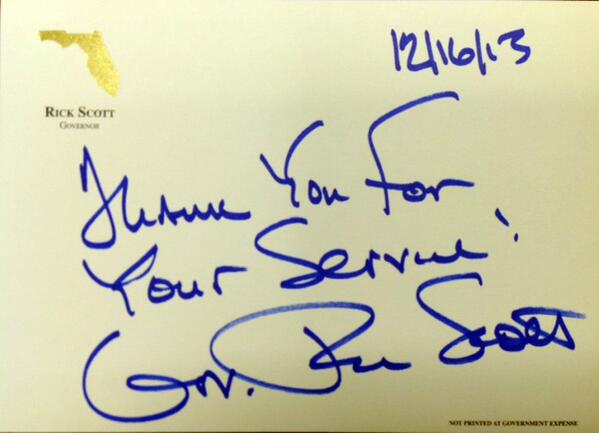 12/16/13
RICK SCOTT
GOVERNOR
Thank You For
Your Service!
Gov. Rick Scott
NOT PRINTED AT GOVERNMENT EXPENSE